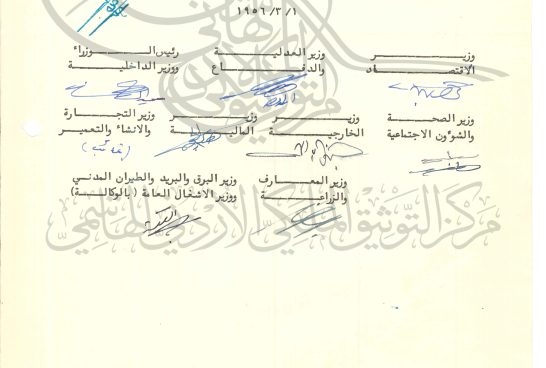 ١٩٥٦/٣/١
رئيس الـوزراء
ووزير الداخلية
وزير العدلية
والدفـاع
وزيـر
الاقتصـاد
وزير التجـارة
والانشاء والتعمير
(غائب)
وزيـر
الماليـة
وزيـر
الخارجيـة
وزير الصحـة
والشؤون الاجتماعية
وزير البرق والبريد والطيران المدني
ووزير الاشغال العامة (بالوكالـة)
وزير المعـارف
والزراعـة
مركز التوثيق الملكي الأردني الهاشمي